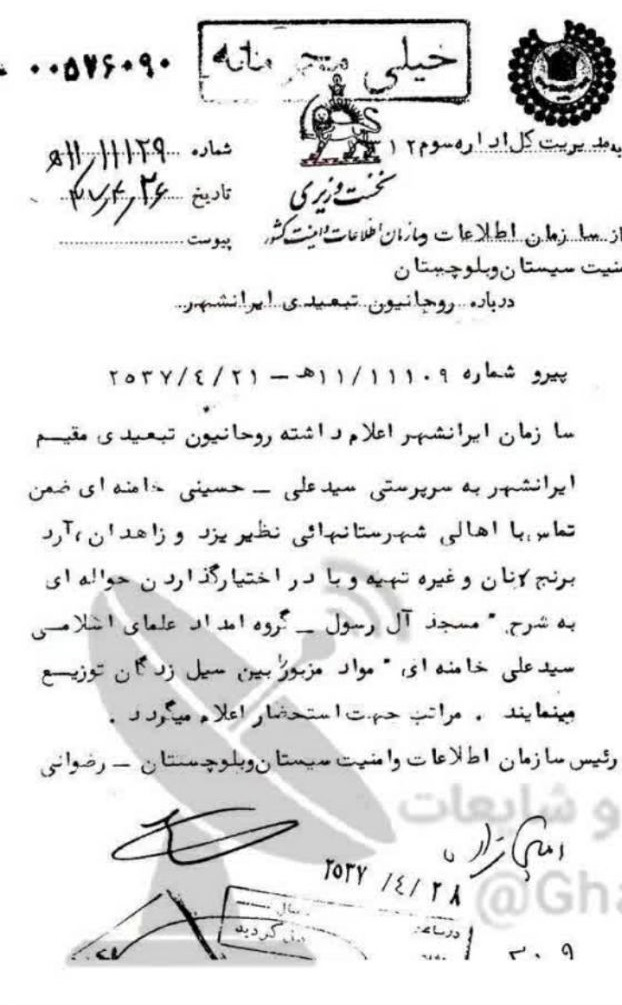 خیلی محرمانه
۰۰۵۷۶۰۹۰
بمدیریت کل اداره سوم ۳۱۲
شماره ۱۱/۱۱۱۲۹ ه
نخست وزیری
تاریخ ۳۷/۴/۲۶
از سازمان اطلاعات وسازمان اطلاعات وامنیت کشور
پیوست
منیت سیستان وبلوچستان
درباره روحانیون تبعیدی ایرانشهر
پیرو شماره ۱۱/۱۱۱۰۹ه‍ – ۲۵۳۷/٤/۲۱
سازمان ایرانشهر اعلام داشته روحانیون تبعیدی مقیم
ایرانشهر به سرپرستی سیدعلی – حسینی خامنه ای ضمن
تماس با اهالی شهرستانهائی نظیر یزد و زاهدان ،آرد
برنج نان و غیره تهیه و با در اختیارگذاردن حواله ای
به شرح " مسجد آل رسول – گروه امداد علمای اسلامی
سیدعلی خامنه ای " مواد مزبور بین سیل زدگان توزیع
مینمایند . مراتب جهت استحضار اعلام میگردد .
رئیس سازمان اطلاعات وامنیت سیستان وبلوچستان – رضوانی
و شایعات
۲۵۳۷/٤/۲۸
@Gha
ارسال
درساعت
گردید
۳۰۹